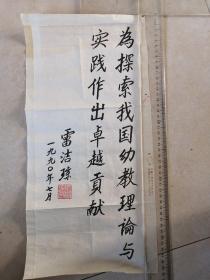 為探索我国幼教理論与
实践作出卓越貢献
雷洁琼
一九九〇年七月